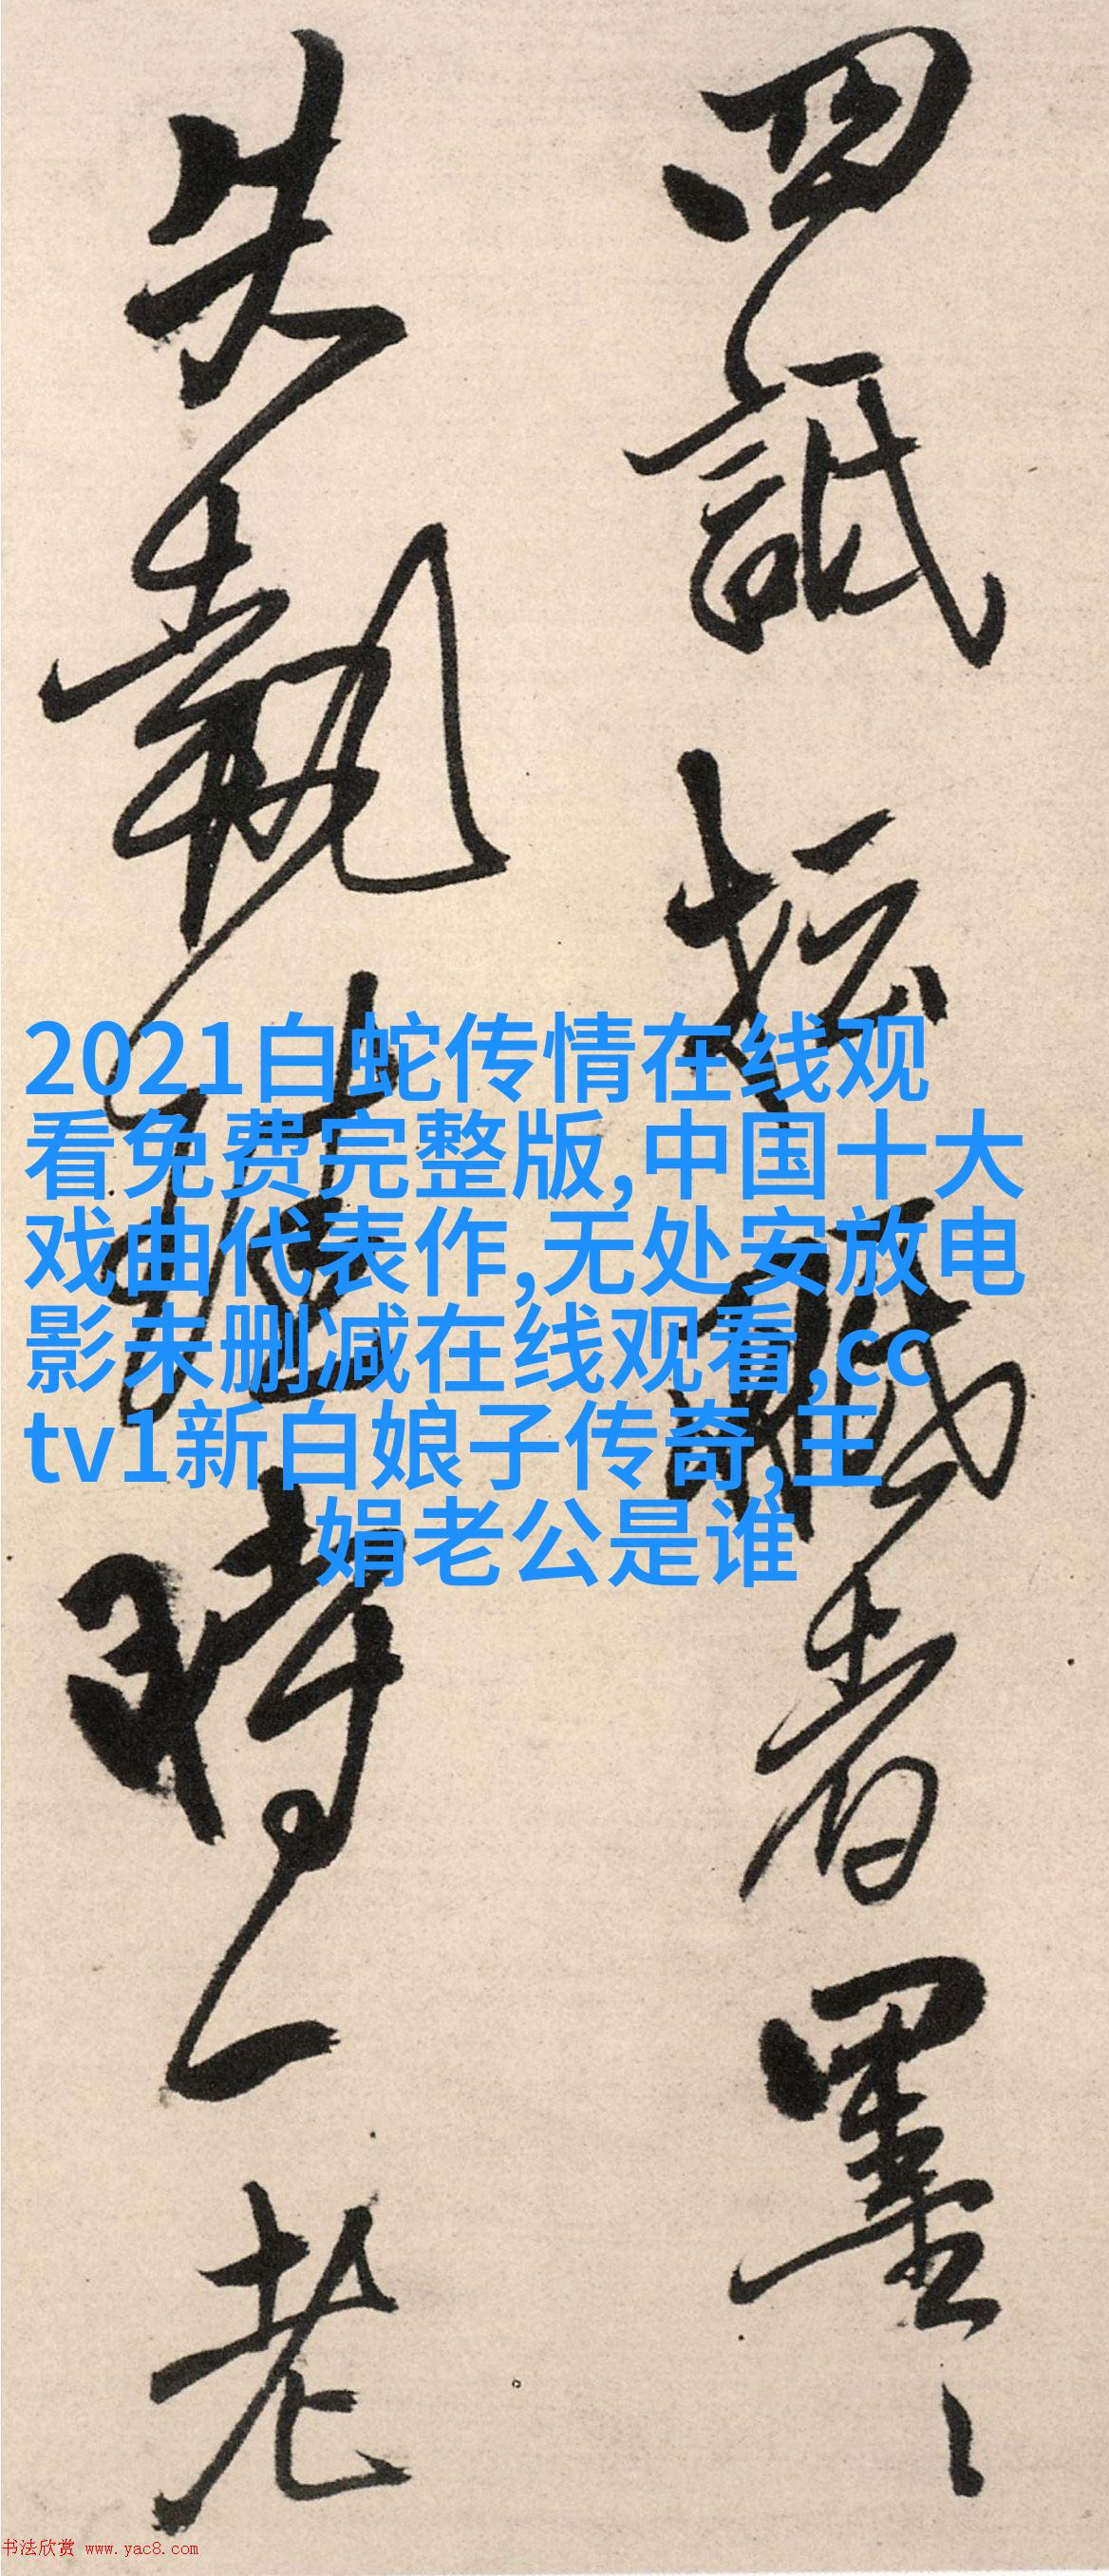 詆 者墨
失執 時一老
2021白蛇传情在线观
看免费完整版,中国十大
戏曲代表作,无处安放电
影未删减在线观看,cc
tv1新白娘子传奇,王
娟老公是谁
书法欣赏 www.yac8.com